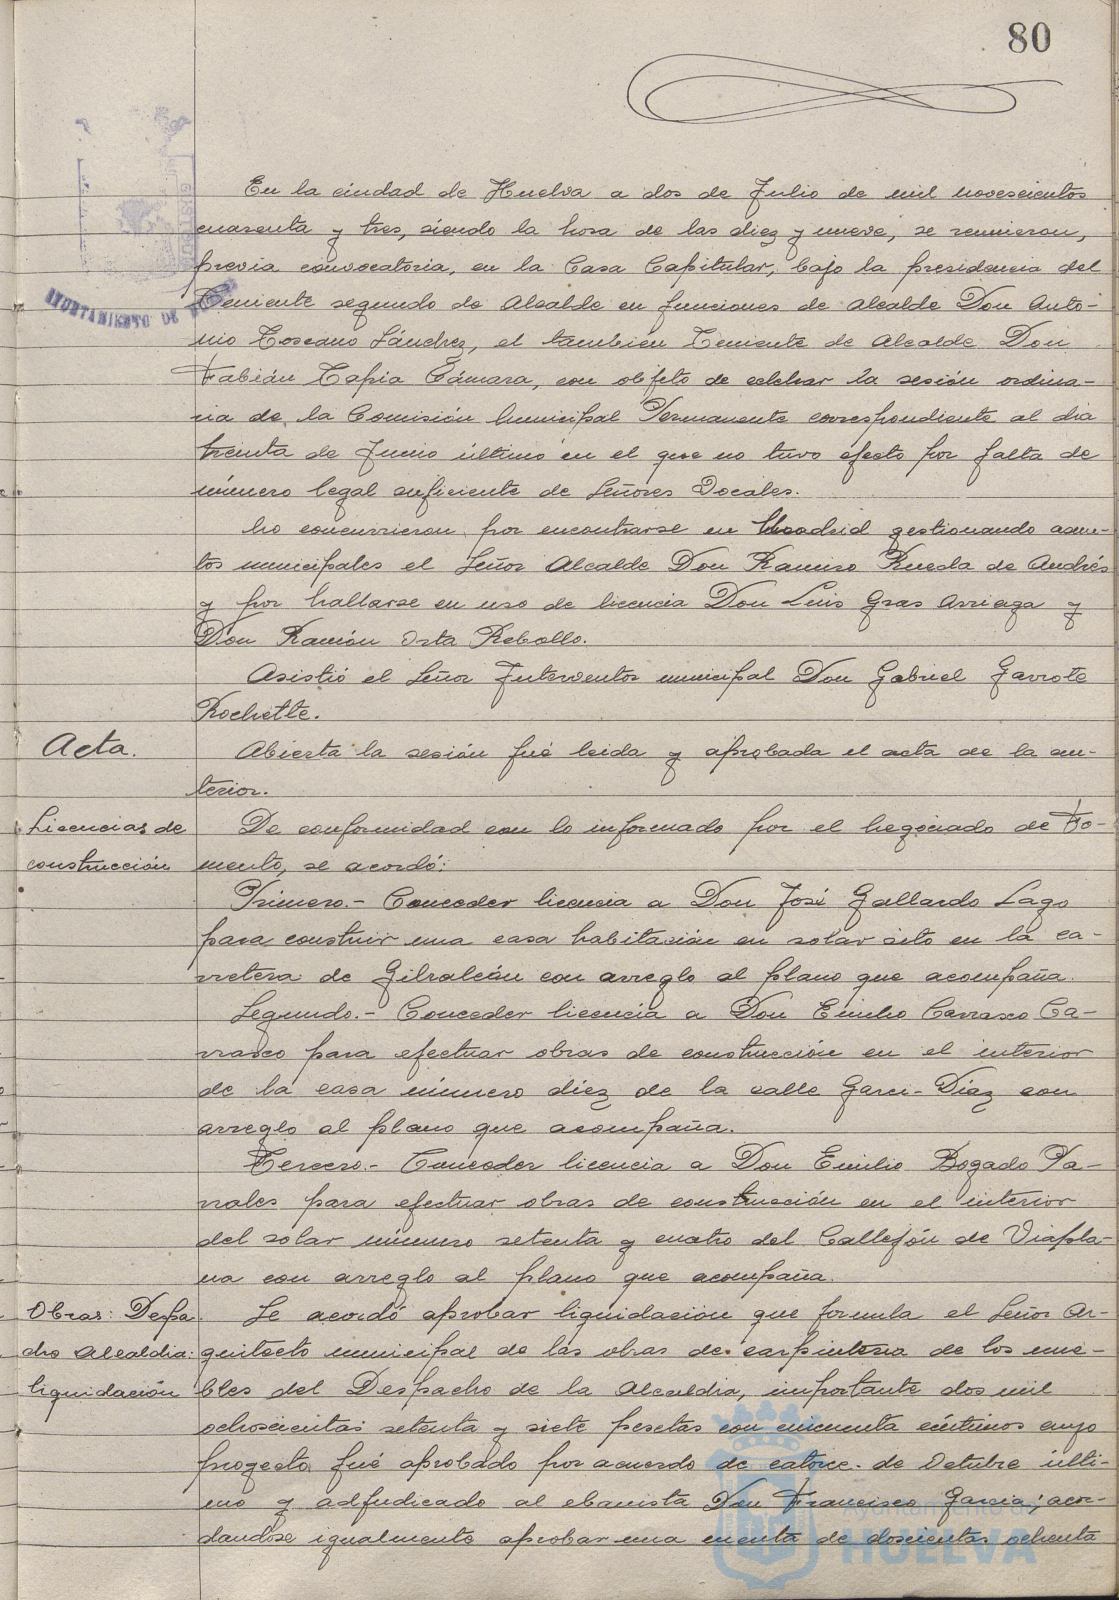 80
En la ciudad de Huelva a dos de Julio de mil novescientos
cuarenta y tres, siendo la hora de las diez y nueve, se reunieron,
previa convocatoria, en la Casa Capitular, bajo la presidencia del
Teniente segundo de Alcalde en funciones de Alcalde Don Anto-
nio Toscano Sánchez, el tambien Teniente de Alcalde Don
Fabián Tapia Cámara, con objeto de celebrar la sesión ordina-
ria de la Comisión Municipal Permanente correspondiente al dia
treinta de Junio último en el que no tuvo efecto por falta de
número legal suficiente de Señores Vocales.
No concurrieron por encontrarse en Madrid gestionando asun-
tos municipales el Señor Alcalde Don Ramiro Rueda de Andrés
y por hallarse en uso de licencia Don Luis Gras Arriaga y
Don Ramón Orta Rebollo.
Asistió el Señor Interventor municipal Don Gabriel Garrote
Rochette.
Acta.
Abierta la sesión fué leida y aprobada el acta de la an-
terior.
Licencias de
construcción
De conformidad con lo informado por el Negociado de Fo-
mento, se acordó:
Primero.- Conceder licencia a Don José Gallardo Lago
para construir una casa habitación en solar sito en la ca-
rretera de Gibraleón con arreglo al plano que acompaña.
Segundo.- Conceder licencia a Don Emilio Carrasco Ca-
rrasco para efectuar obras de construcción en el interior
de la casa número diez de la calle Garci-Diaz con
arreglo al plano que acompaña.
Tercero.- Conceder licencia a Don Emilio Bogado Pa-
rrales para efectuar obras de construcción en el interior
del solar número setenta y cuatro del Callejón de Viapla-
na con arreglo al plano que acompaña.
Obras: Despa
cho Alcaldia:
liquidación
Se acordó aprobar liquidación que formula el Señor Ar-
quitecto municipal de las obras de carpinteria de los mue-
bles del Despacho de la Alcaldia, importante dos mil
ochoscientas setenta y siete pesetas con cincuenta céntimos cuyo
proyecto fué aprobado por acuerdo de catorce de Octubre últi-
mo y adjudicado al ebanista Don Francisco Garcia; acor-
dandose igualmente aprobar una cuenta de doscientas ochenta
AYUNTAMIENTO DE
Ayuntamiento de
HUELVA